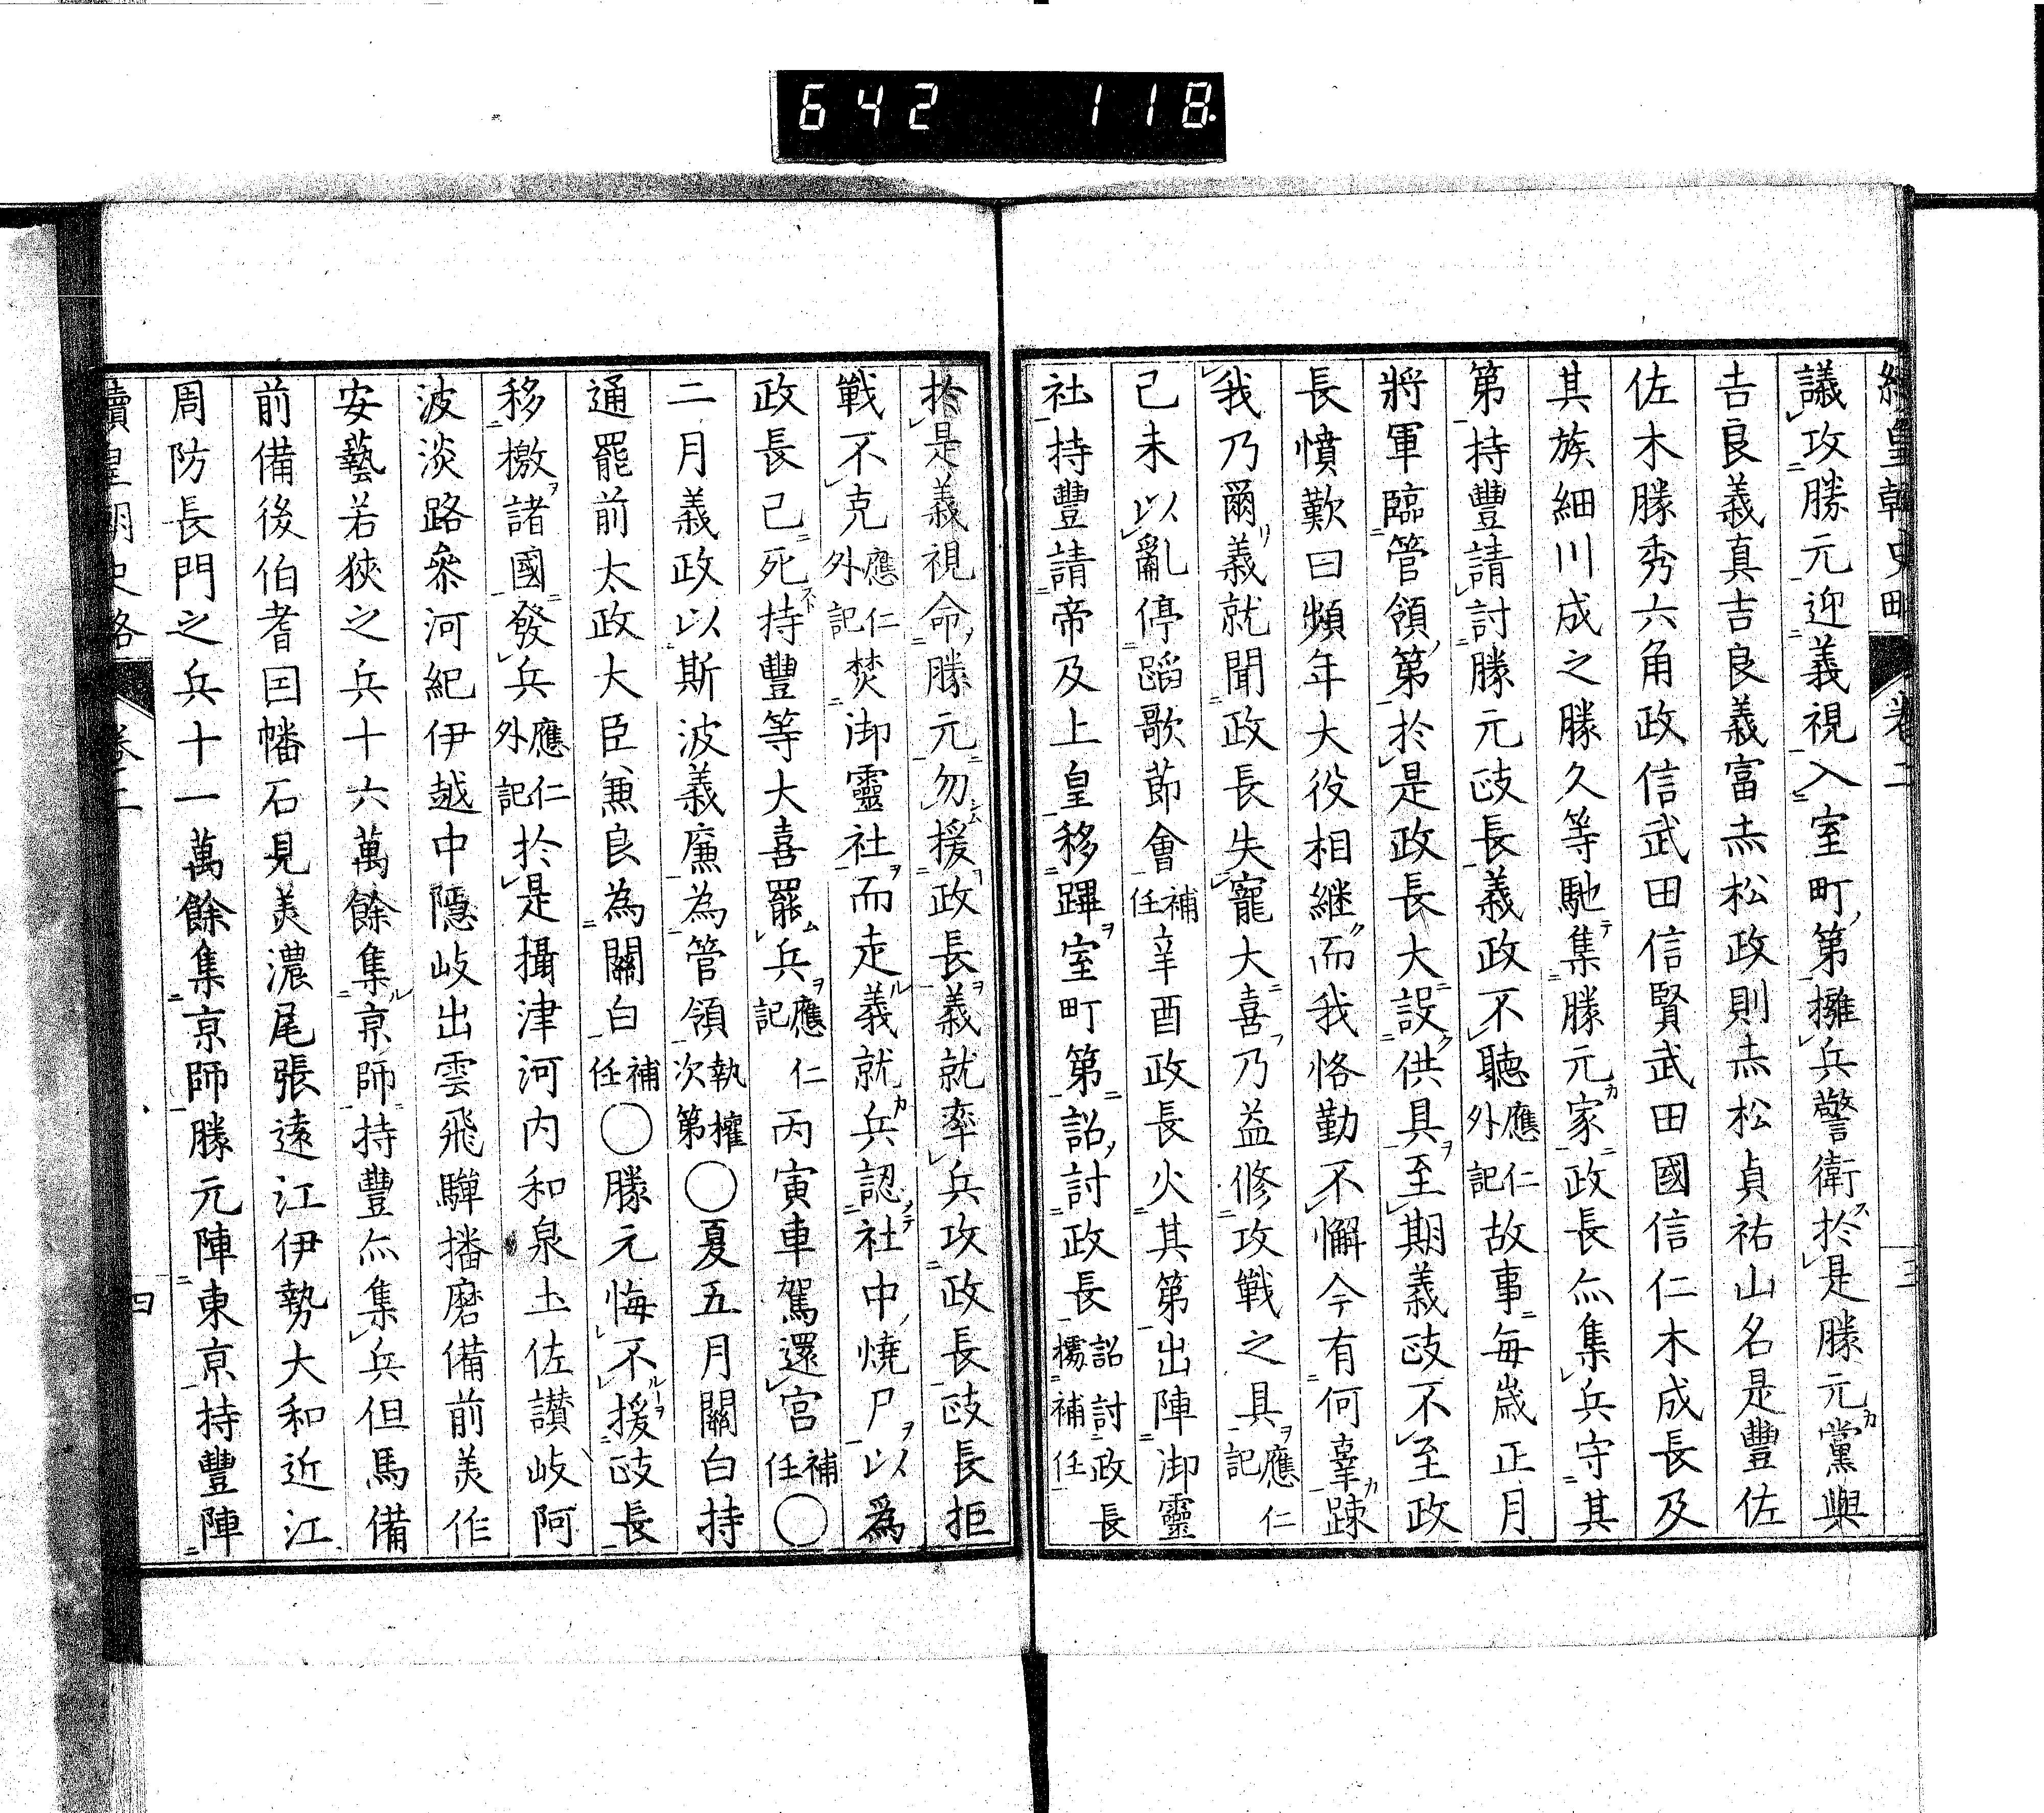 642 118
續皇朝史略 卷二 三
議攻勝元迎義視入室町第擁兵警衛於是勝元黨與
吉良義真吉良義富赤松政則赤松貞祐山名是豐佐
佐木勝秀六角政信武田信賢武田國信仁木成長及
其族細川成之勝久等馳集勝元家政長亦集兵守其
第持豐請討勝元政長義政不聽應仁外記故事每歲正月
將軍臨管領第於是政長大設供具至期義政不至政
長憤歎曰頻年大役相繼而我恪勤不懈今有何辜疎
我乃爾義就聞政長失寵大喜乃益修攻戰之具應仁記
己未以亂停蹈歌節會補任辛酉政長火其第出陣御靈
社持豐請帝及上皇移蹕室町第詔討政長詔討政長據補任
於是義視命勝元勿援政長義就率兵攻政長政長拒
戰不克應仁外記焚御靈社而走義就兵認社中燒尸以爲
政長已死持豐等大喜罷兵應仁記丙寅車駕還宮補任○
二月義政以斯波義廉為管領執權次第○夏五月關白持
通罷前太政大臣兼良為關白補任○勝元悔不援政長
移檄諸國發兵應仁外記於是攝津河內和泉土佐讃岐阿
波淡路參河紀伊越中隱岐出雲飛驒播磨備前美作
安藝若狹之兵十六萬餘集京師持豐亦集兵但馬備
前備後伯耆因幡石見美濃尾張遠江伊勢大和近江
周防長門之兵十一萬餘集京師勝元陣東京持豐陣
續皇朝史略 卷二 四